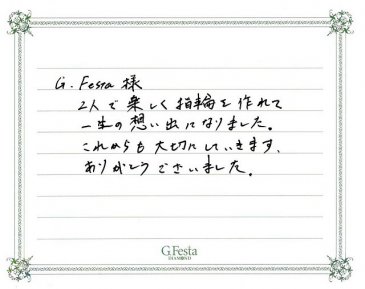 G. Festa 様
2人で楽しく指輪を作れて
一生の想い出になりました。
これからも大切にしていきます、
ありがとうございました。
G.Festa
DIAMOND